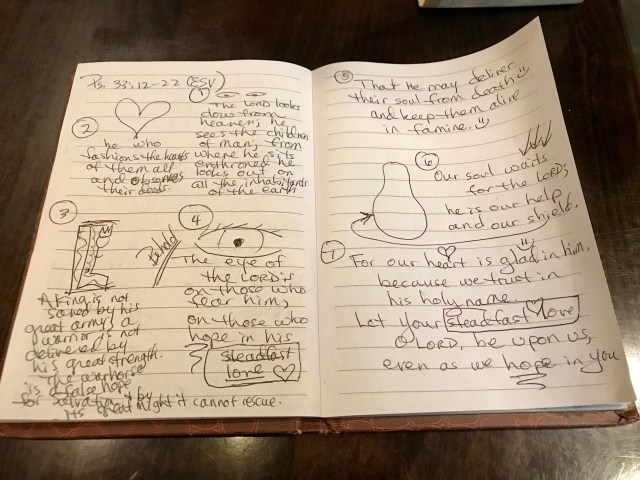 Ps. 33:12-22 (ESV)
①
The LORD looks
down from
heaven; he
sees the children
of man; from
where he sits
enthroned he
looks out on
all the inhabitants
of the earth
②
he who
fashions the hearts
of them all
and observes
their deeds.
③
A king is not
saved by his
great army; a
warrior is not
delivered by
his great strength.
The war horse
is a false hope
for salvation, & by
its great might it cannot rescue.
④
Behold
The eye of
the LORD is
on those who
fear him,
on those who
hope in his
steadfast
love
⑤
That He may deliver
their soul from death
and keep them alive
in famine.
⑥
Our soul waits
for the LORD;
he is our help
and our shield.
⑦
For our heart is glad in him,
because we trust in
his holy name.
Let your steadfast love
O LORD, be upon us,
even as we hope in you